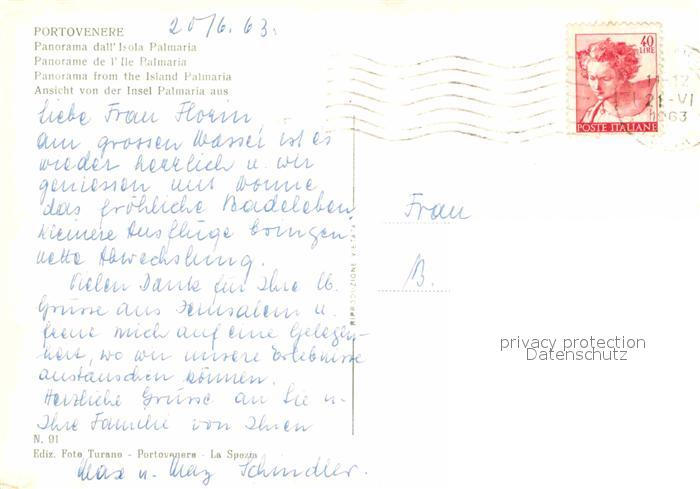 20/6.63.
PORTOVENERE
Panorama dall'Isola Palmaria
Panorame de l'Ile Palmaria
Panorama from the Island Palmaria
Ansicht von der Insel Palmaria aus
Liebe Frau Florin,
am grossen Wasser ist es
wieder herrlich u. wir
geniessen mit Wonne
das fröhliche Badeleben.
Kleinere Ausflüge bringen
nette Abwechslung.
Vielen Dank für Ihre lb.
Grüsse aus Jerusalem u.
freue mich auf eine Gelegen-
heit, wo wir unsere Erlebnisse
austauschen können.
Herzliche Grüsse an Sie u.
Ihre Familie von Ihnen
N. 91
Ediz. Foto Turano - Portovenere - La Spezia
Max u. Schindler.
RIPRODUZIONE VIETATA
40
LIRE
POSTE ITALIANE
21-VI
1963
Frau
B.
privacy protection
Datenschutz